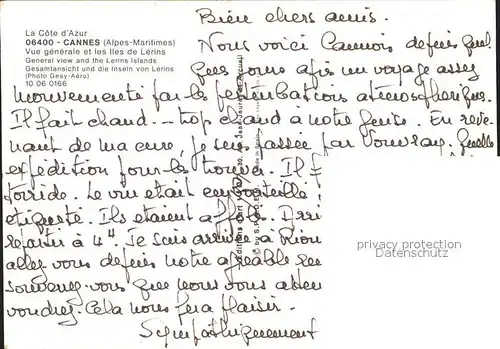 La Côte d'Azur
06400 - CANNES (Alpes-Maritimes)
Vue générale et les Iles de Lérins
General view and the Lerins Islands
Gesamtansicht und die Inseln von Lérins
(Photo Geay-Aéro)
10 06 0166
Bien chers amis.
Nous voici Cannois depuis quel
ques jours après un voyage assez
mouvementé par les perturbations atmosphériques.
Il fait chaud... trop chaud à notre guise. En reve
nant de ma cure, je suis passée par Vouvray. Quelle
expédition pour les trouver. Il
torride. Le vin était en bouteille
étiqueté. Ils étaient
repartir à 4h. Je suis arrivée à
allez vous depuis notre agréable
Souvenez-vous que nous vous
voudrez. Cela nous fera plaisir.
Sympathiquement
privacy protection
Datenschutz